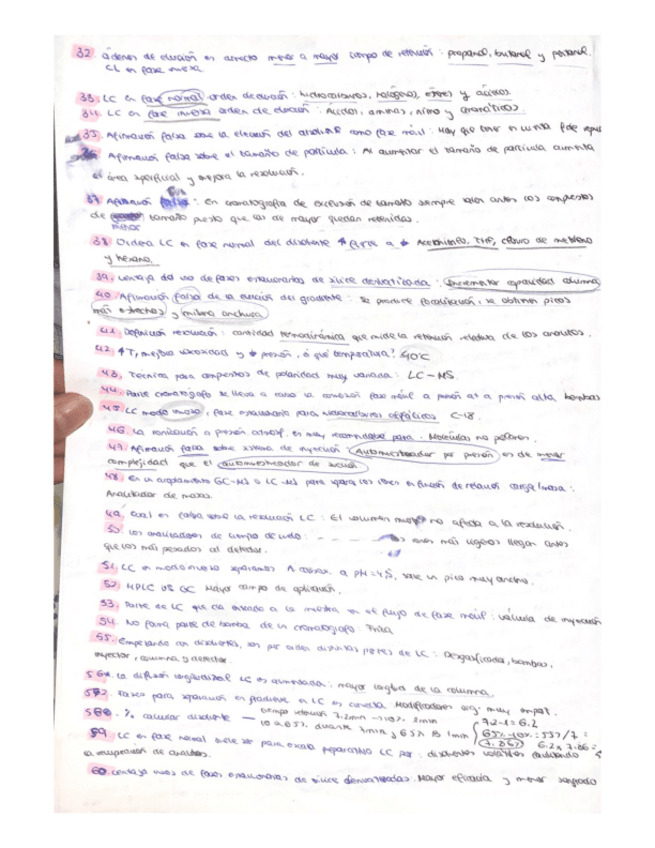 32. órdenes de elución en correcto menor a mayor tiempo de retención: propanol, butanol y pentanol.
CL en fase inversa
33. LC en fase normal orden de elución: hidrocarburos, halógenos, éteres y ácidos
34. LC en fase inversa orden de elución: Ácidos, aminas, nitro y aromáticos.
35. Afirmación falsa sobre la elección del disolvente como fase móvil: Hay que tener en cuenta
36 Afirmación falsa sobre el tamaño de partícula: Al aumentar el tamaño de partícula aumenta
el área superficial y mejora la resolución.
37 Afirmación falsa: En cromatografía de exclusión de tamaño siempre salen antes los compuestos
de menor tamaño puesto que los de mayor quedan retenidas.
38 Ordena LC en fase normal del disolvente + fuerte a - Acetonitrilo, THF, cloruro de metileno
y hexano.
39. Ventaja del uso de fases estacionarias de sílice derivatizada: Incrementar capacidad columna
40. Afirmación falsa de la elución del gradiente: Se produce focalización, se obtienen picos
más estrechos y misma anchura
41. Definición resolución: cantidad termodinámica que mide la retención relativa de los analitos.
42. ↑T, mejora viscosidad y presión, a qué temperatura? 40°C
43. Técnica para compuestos de polaridad muy variada: LC-MS
44. Parte cromatógrafo se lleva a cabo la conexión fase móvil a presión at a presión alta, bombas
45. LC modo inverso, fase estacionaria para hidrocarburos alifáticos C-18.
46. La ionización a presión atmosf. es muy recomendable para: Moléculas no polares.
47. Afirmación falsa sobre sistema de inyección: Automuestreador por presión es de menor
complejidad que el automuestreador de succión
48. En un acoplamiento GC-MS o LC-MS para separa los iones en función de relación carga/masa:
Analizador de masas.
49. Cual es falsa sobre la resolución LC: El volumen muerto no afecta a la resolución.
50. Los analizadores de tiempo de vuelo: - - - - - iones más ligeros llegan antes
que los más pesados al detector.
51. LC en modo inverso separamos A a pH=4,5, sale un pico muy ancho.
52. HPLC VS GC Mayor campo de aplicación.
53. Parte de LC que da entrada a la muestra en el flujo de fase móvil: válvula de inyección
54. No forma parte de bomba de un cromatógrafo: Frita
55. Empezando con disolventes, son por orden distintas partes de LC: Desgasificador, bombas,
inyector, columna y detector.
56. La difusión longitudinal LC es aumentada: mayor longitud de la columna
57. Pasos para separación en gradiente en LC es correcta Modificadores org. muy import.
58. % calcular disolvente — tiempo retención 7.2min → 10% 1min
10 a 65% durante 7min y 65% B 1min 7.2-1= 6.2
65%-10% = 55%/7 =
7.86% 6.2 x 7.86 =
59. LC en fase normal suele ser para escala preparativa LC por: disolventes volátiles facilitando
la recuperación de analitos.
60. Ventaja usos de fases estacionarias de sílice derivatizadas. Mayor eficacia y menor sangrado